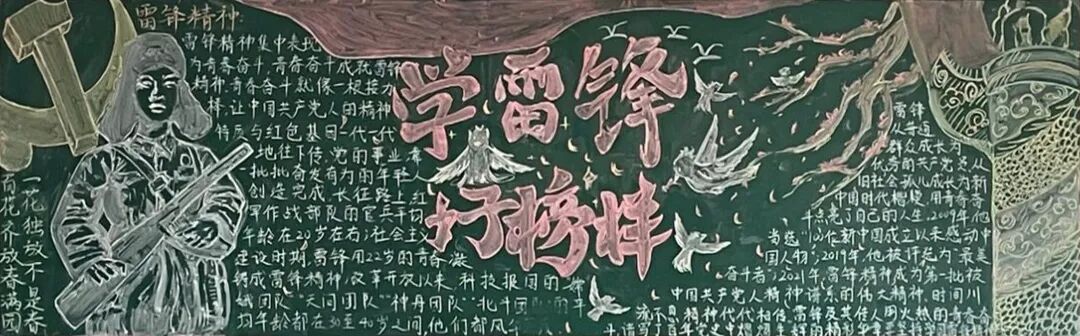 雷锋精神
雷锋精神集中表现
为青春奋斗,青春奋斗成就雷锋
精神.青春奋斗就像一根接力
棒,让中国共产党人的精神
特质与红色基因一代一代
地往下传.党的事业靠
一批批奋发有为的年轻人
创造完成.长征路上红
军作战部队的官兵平均
年龄在20岁左右;社会主义
建设时期,雷锋用22岁的青春凝
铸成雷锋精神;改革开放以来科技报国的
娥团队""天问团队""神舟团队""北斗团队
均年龄都在30至40岁之间,他们都风
学雷锋
好榜样
一花独放不是春
百花齐放春满园
雷锋
从普通
群众成长为
优秀的共产党员从
旧社会孤儿成长为新
中国时代楷模,用青春奋
斗点亮了自己的人生.2009年他
当选"100位新中国成立以来感动中
国人物";2019年,他被评选为"最美
奋斗者";2021年,雷锋精神成为第一批被
中国共产党人精神谱系的伟大精神.时间川
流不息,精神代代相传.雷锋及其传人用火热的青春奋